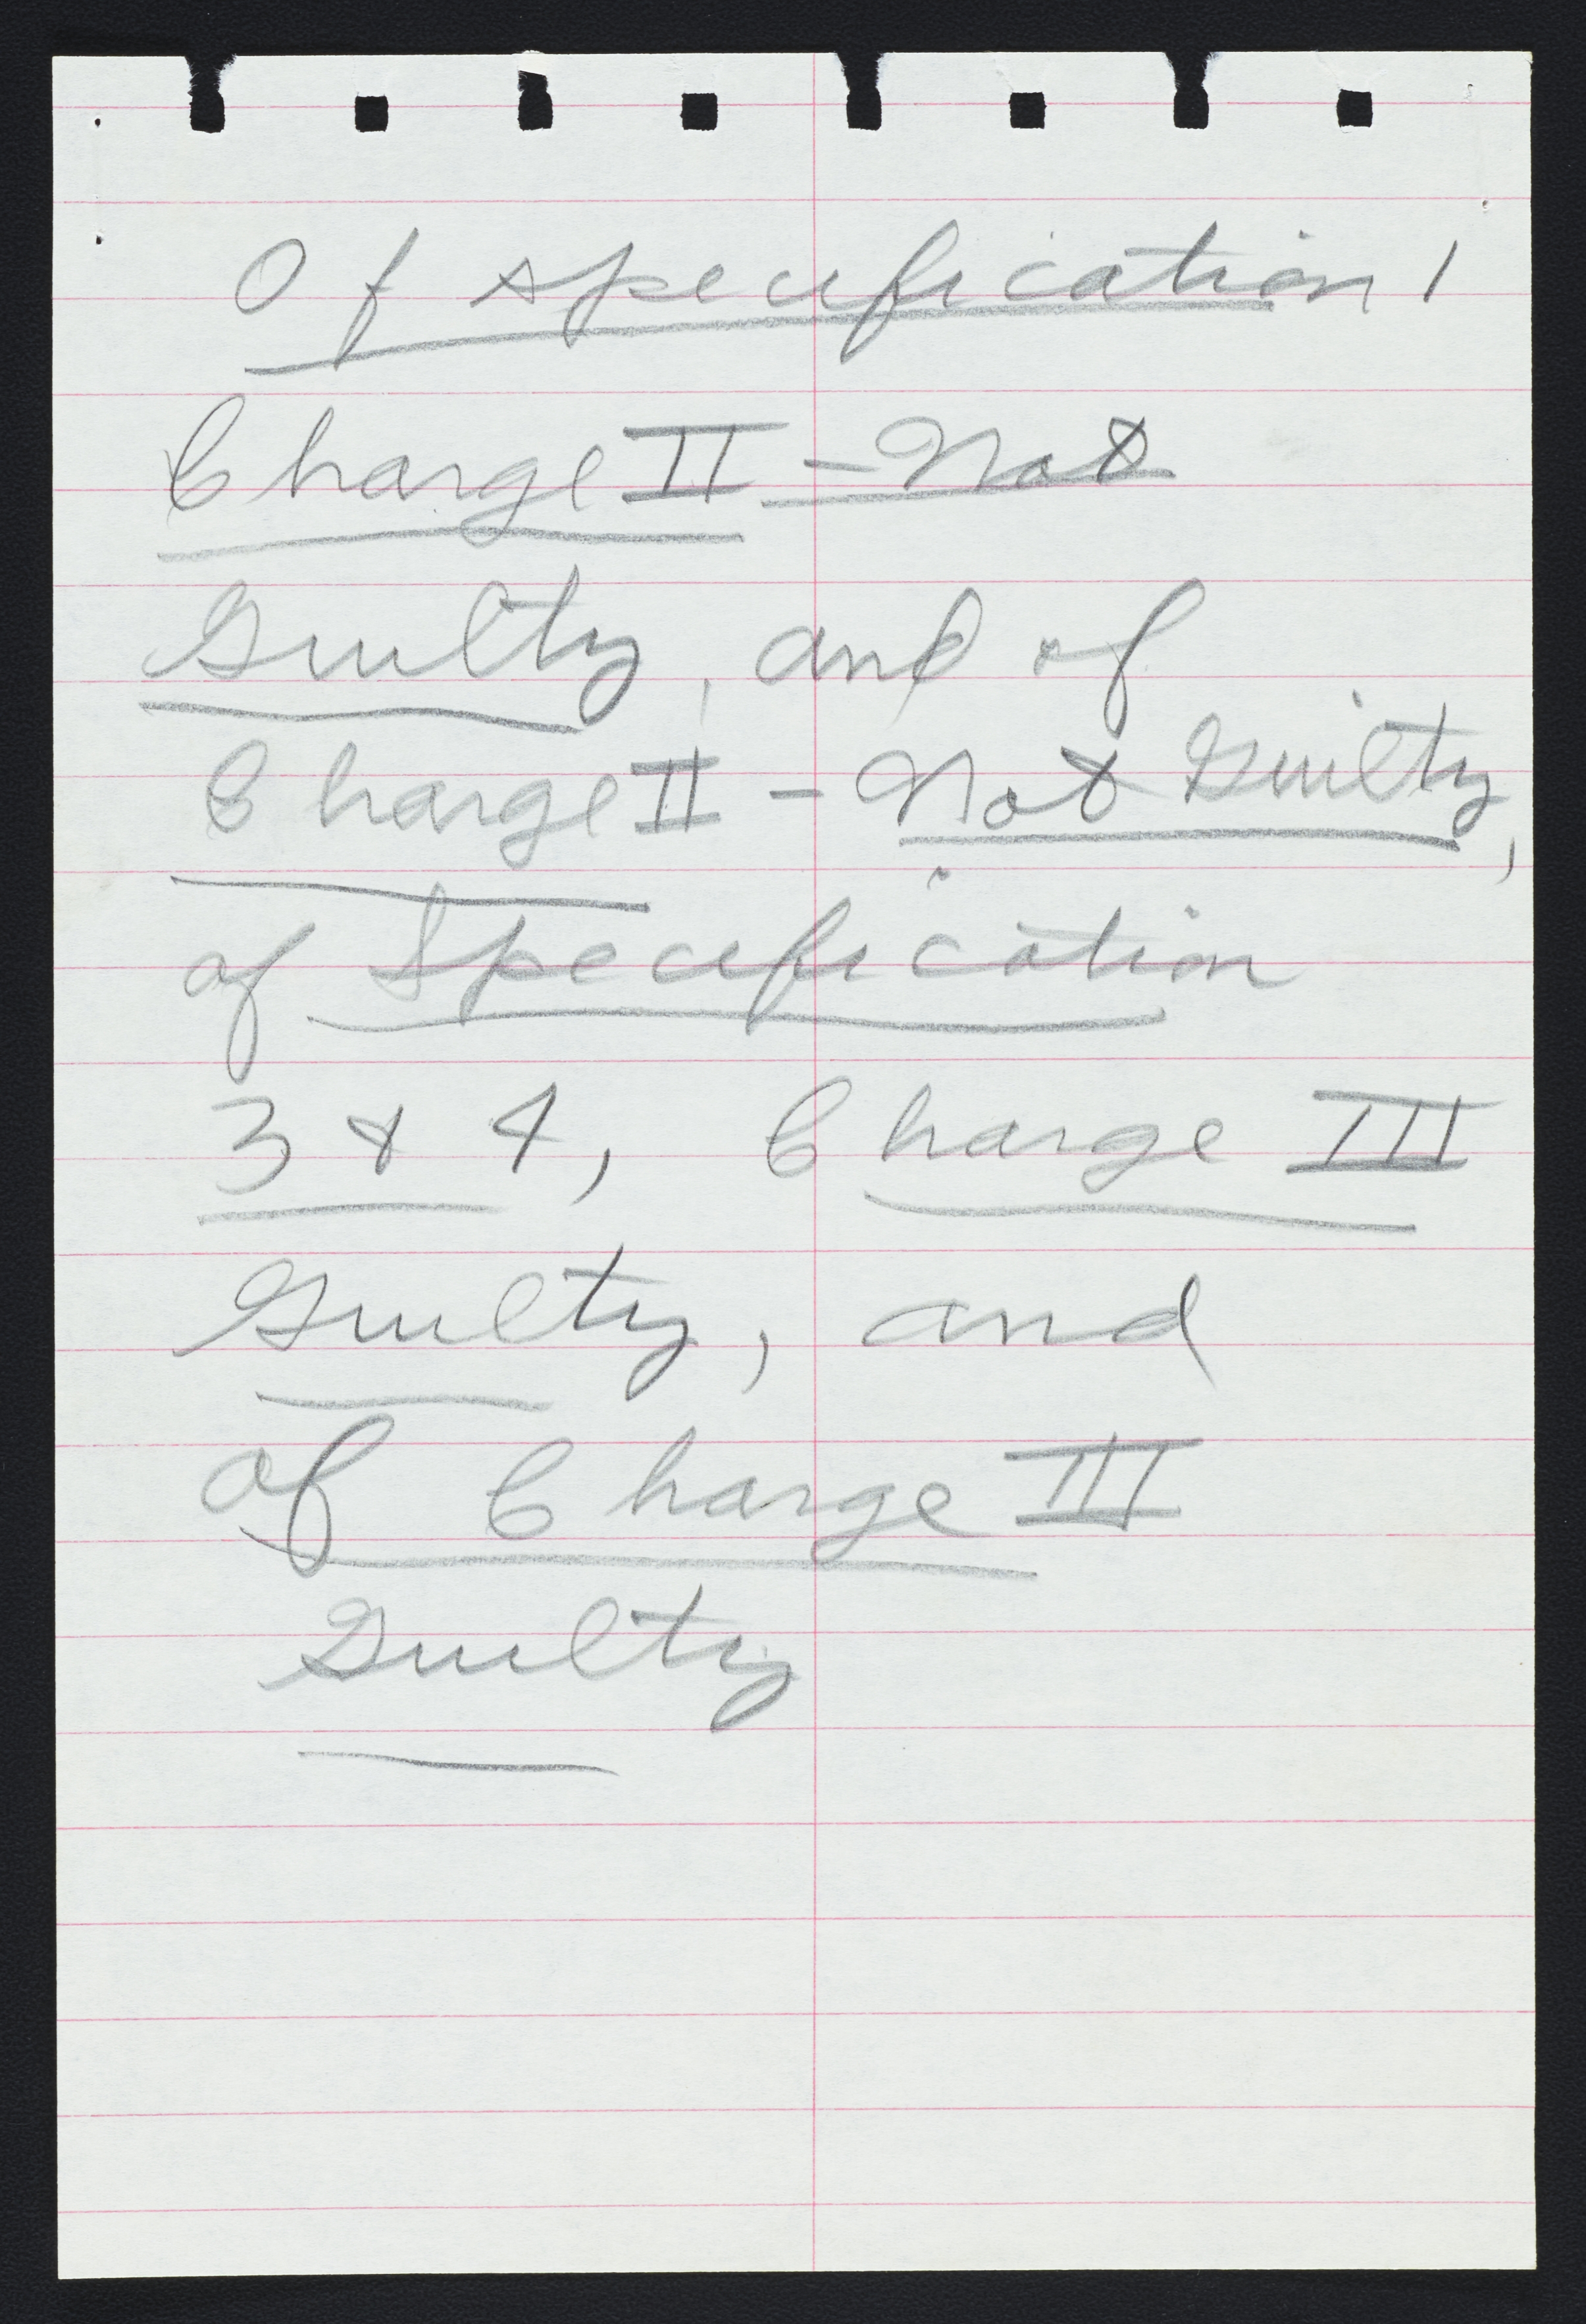 Of specification 1
Charge II - Not
Guilty, and of
Charge II - Not Guilty,
of Specification
3 & 4, Charge III
Guilty, and
of Charge III
Guilty